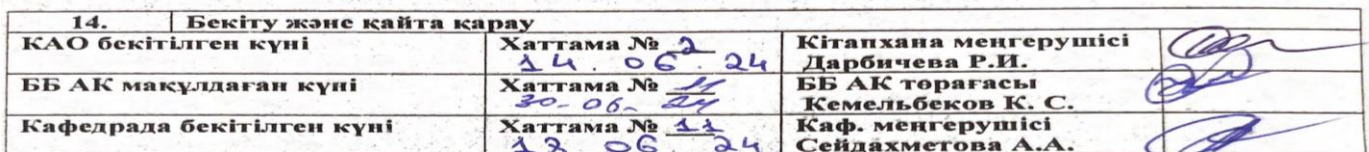 14. Бекіту және қайта қарау
КАО бекітілген күні Хаттама № 2 Кітапхана меңгерушісі
14. 06. 24 Дарбичева Р.И.
ББ АК мақұлдаған күні Хаттама № 11 ББ АК төрағасы
30-06-24 Кемельбеков К. С.
Кафедрада бекітілген күні Хаттама № 11 Каф. меңгерушісі
06. 24 Сейдахметова А.А.